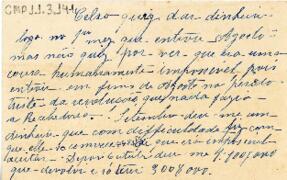 CMP 1.1.3.141
Celso quiz dar dinheiro
logo no 1º mez que entrou Agosto
mas não quiz por ver que era uma
cousa humanamente impossivel pois
entrou em fins de Agosto no periodo
triste da revolução que nada fazia
a Recebedoria. Setembro deu-me um
dinheiro que com difficuldade fiz com
que elle se convencesse que era
acceitar. Depois Outubro deu me 1.100$000
que devolvi e só tirei 300$000.